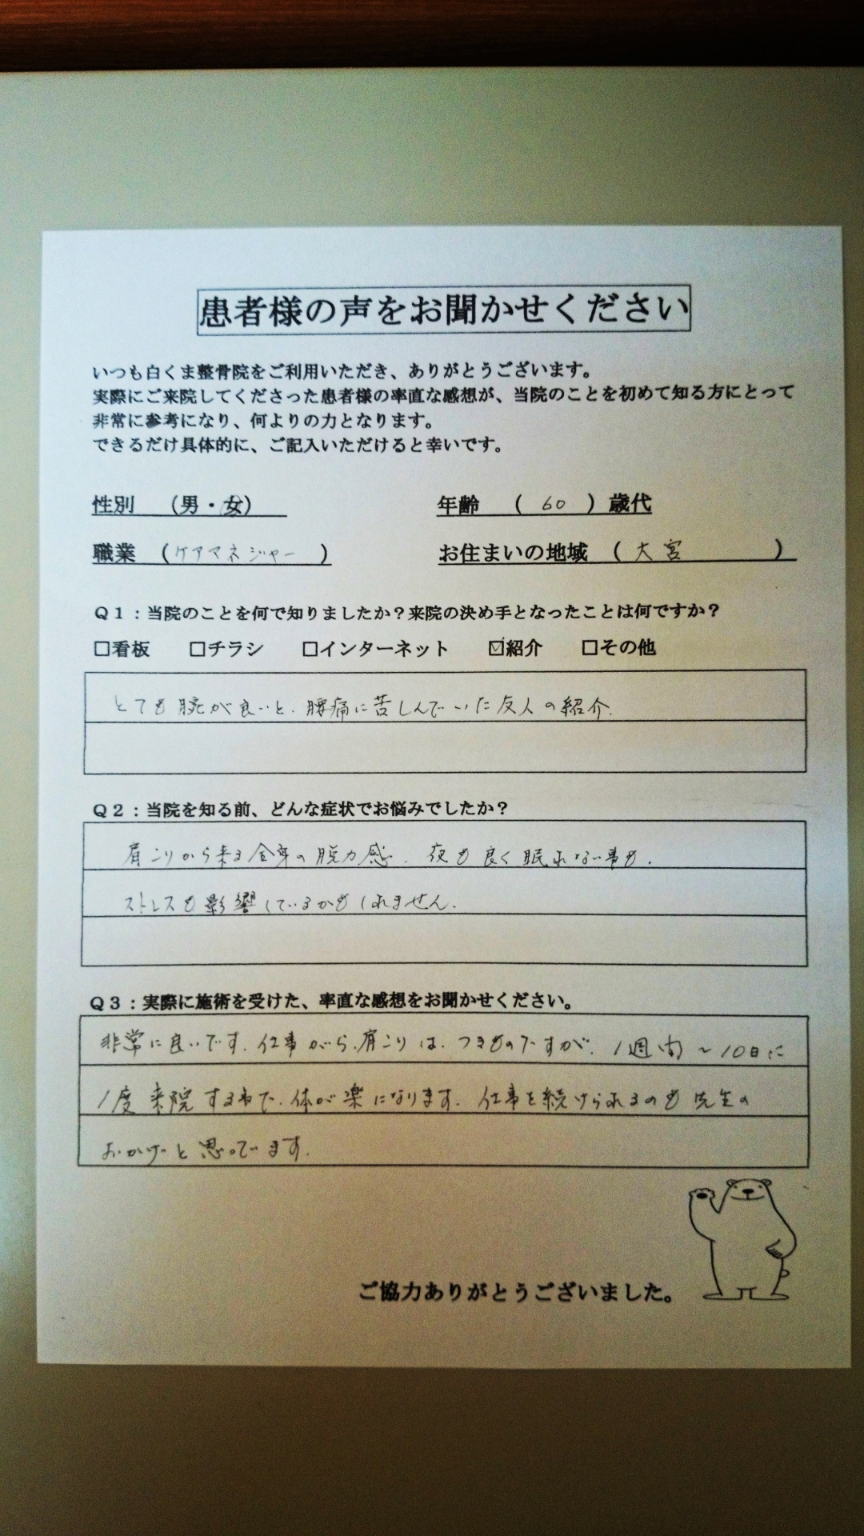 患者様の声をお聞かせください
いつも白くま整骨院をご利用いただき、ありがとうございます。
実際にご来院してくださった患者様の率直な感想が、当院のことを初めて知る方にとって
非常に参考になり、何よりの力となります。
できるだけ具体的に、ご記入いただけると幸いです。
性別 （男・女） 年齢 （ 60 ）歳代
職業 （ケアマネジャー ） お住まいの地域 （ 大宮 ）
Q1：当院のことを何で知りましたか？来院の決め手となったことは何ですか？
□看板 □チラシ □インターネット ☑紹介 □その他
とても腕が良いと、腰痛に苦しんでいた友人の紹介.
Q2：当院を知る前、どんな症状でお悩みでしたか？
肩こりから来る全身の脱力感. 夜も良く眠れない事も.
ストレスも影響しているかもしれません.
Q3：実際に施術を受けた、率直な感想をお聞かせください。
非常に良いです. 仕事がら、肩こりは、つきものですが、1週間～10日に
1度来院する事で、体が楽になります. 仕事を続けられるのも先生の
おかげと思ってます.
ご協力ありがとうございました。